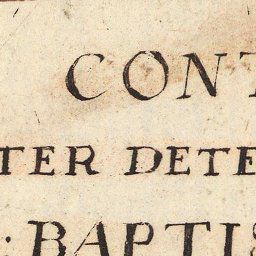 CONT
TER DETE
: BAPTIS